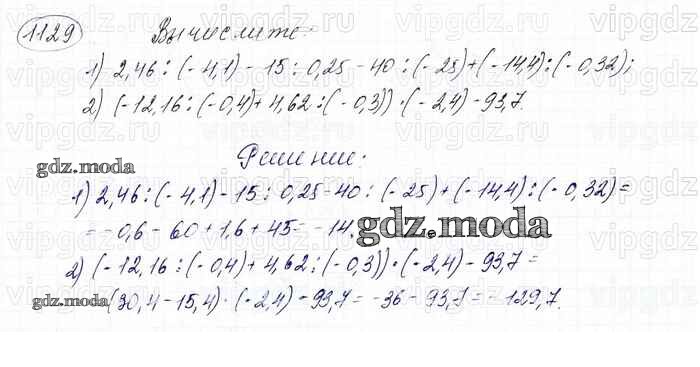 1129 Вычислите:
1) 2,46 : (- 4,1) - 15 : 0,25 - 40 : (- 25) + (- 14,4) : (- 0,32);
2) (- 12,16 : (- 0,4) + 4,62 : (- 0,3)) · (- 2,4) - 93,7.
Решение:
gdz.moda
1) 2,46 : (- 4,1) - 15 : 0,25 - 40 : (- 25) + (- 14,4) : (- 0,32) =
= - 0,6 - 60 + 1,6 + 45 = - 14.
gdz.moda
2) (- 12,16 : (- 0,4) + 4,62 : (- 0,3)) · (- 2,4) - 93,7 =
gdz.moda (30,4 - 15,4) · (- 2,4) - 93,7 = - 36 - 93,7 = - 129,7.